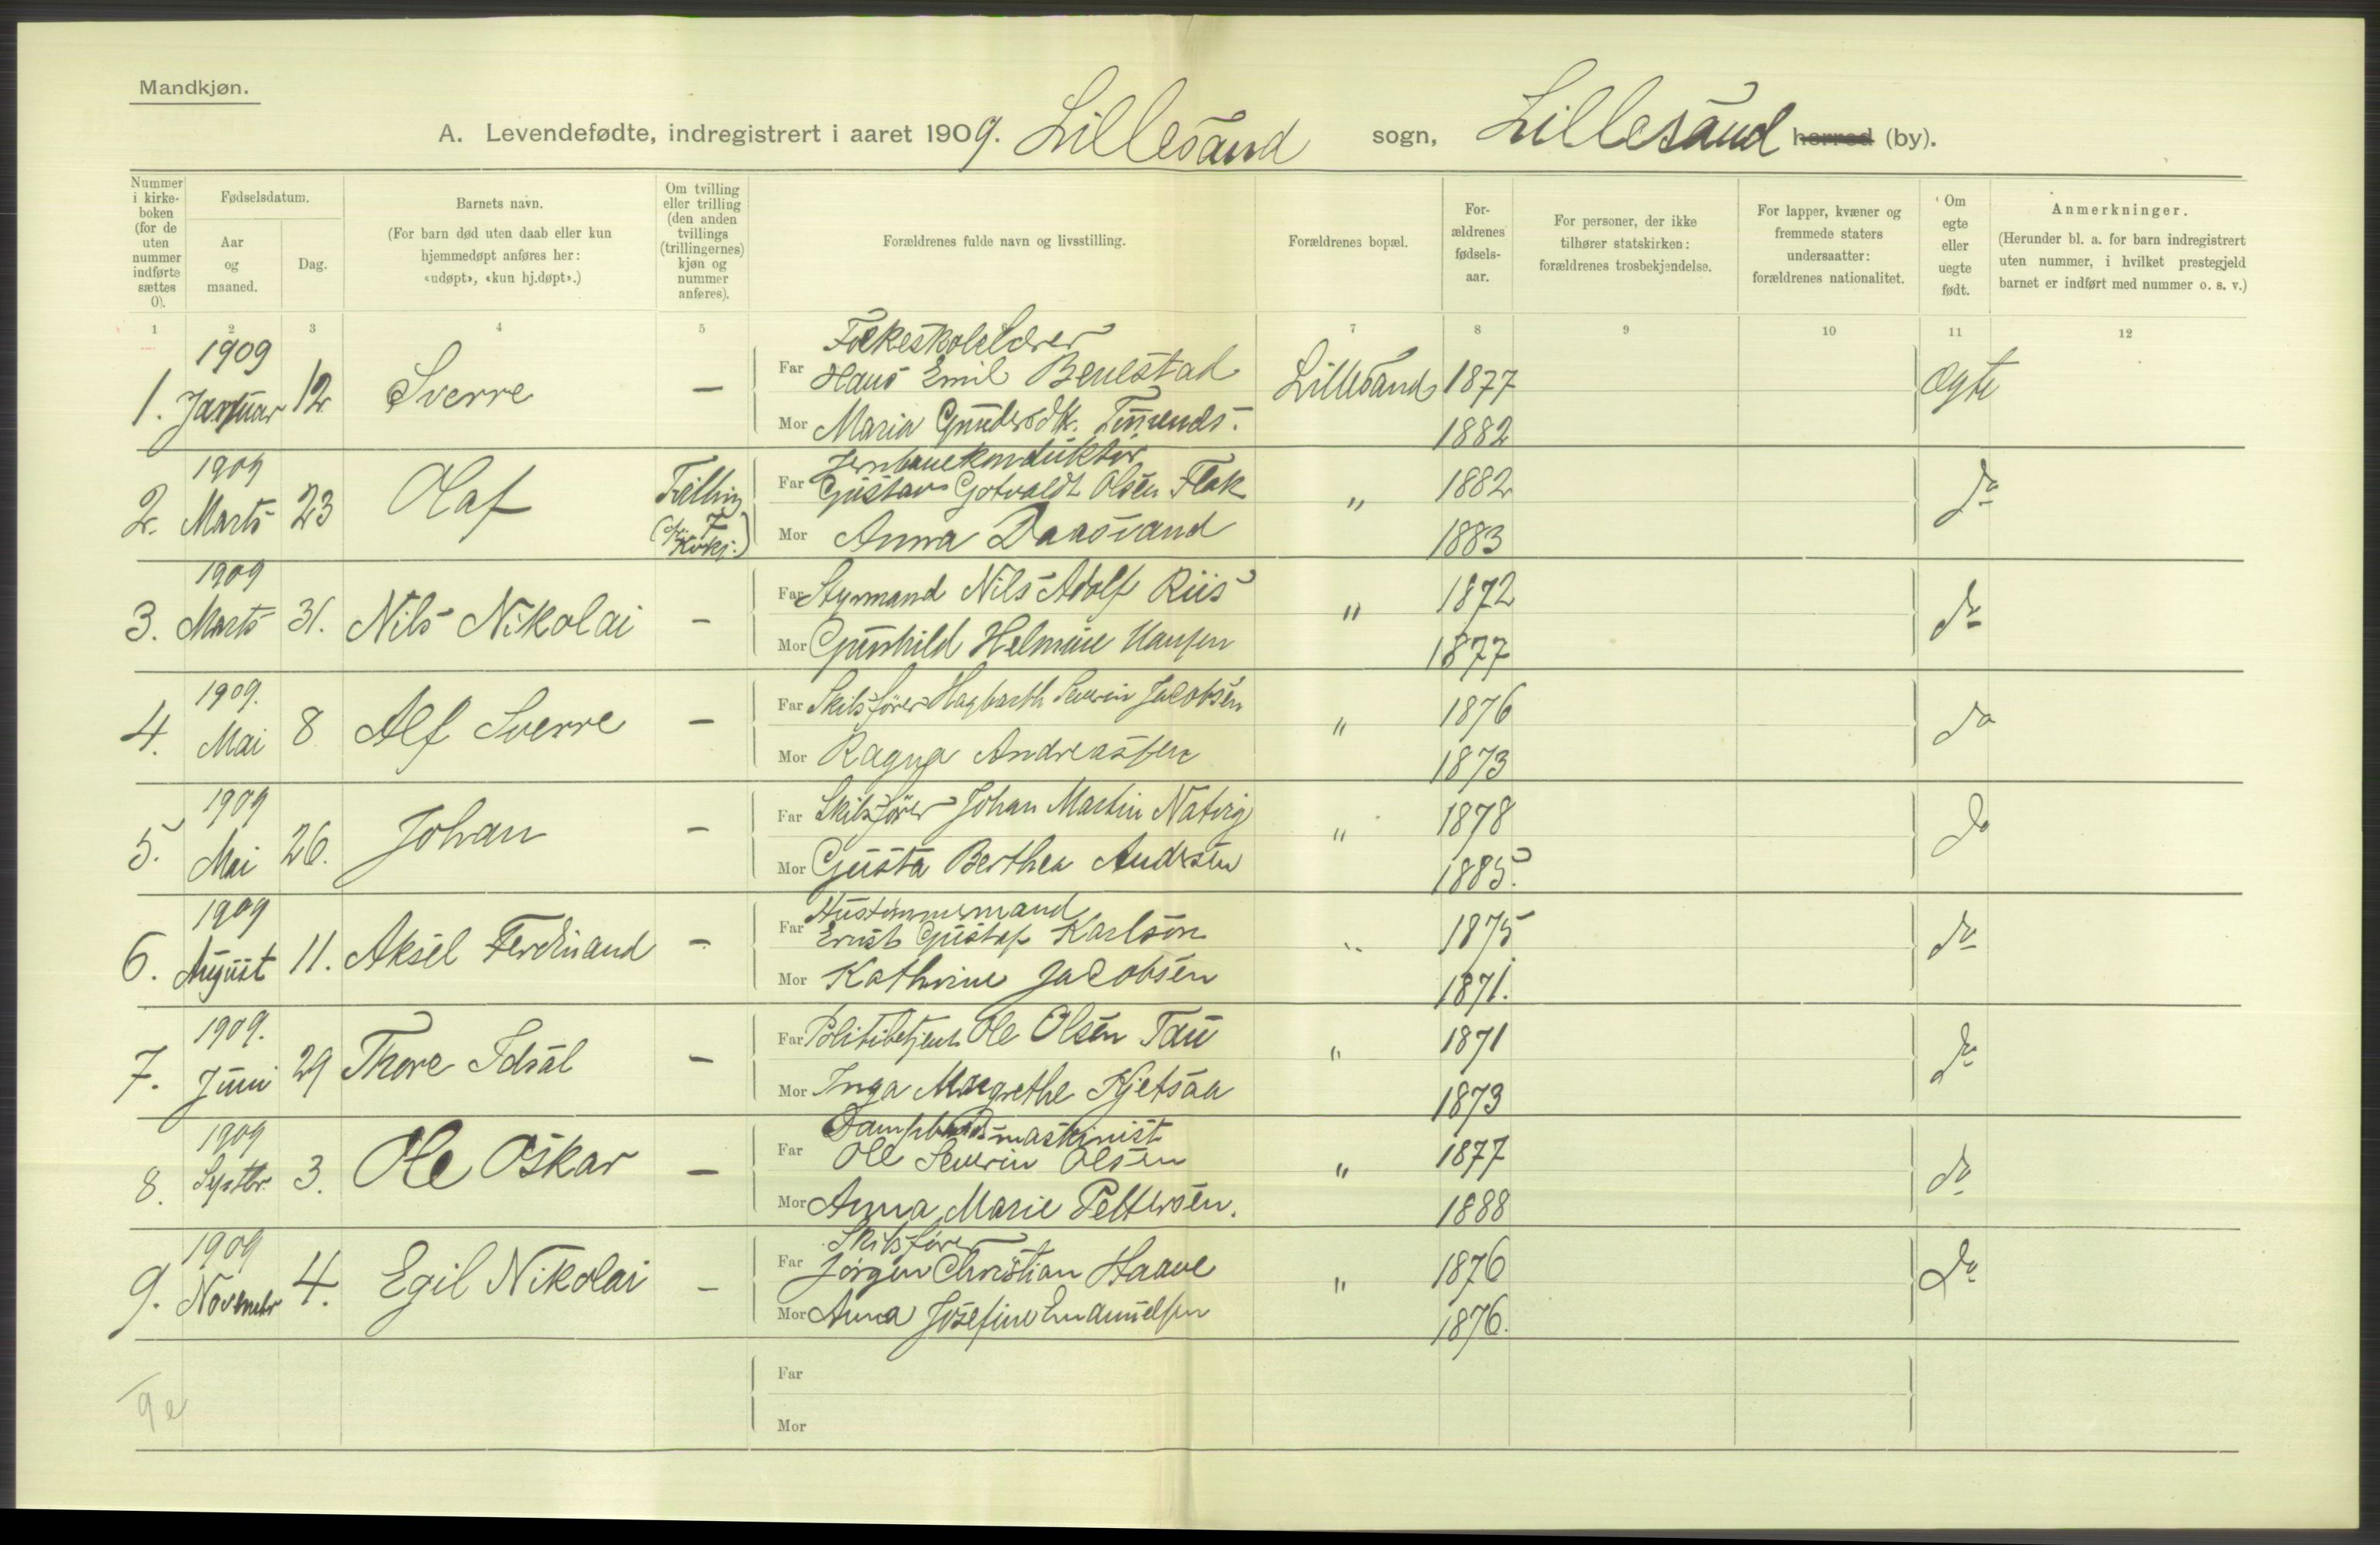 Mandkjøn.
A. Levendefødte, indregistrert i aaret 1909. Lillesand sogn, Lillesand herred (by).
Nummer i kirkeboken (for de uten nummer indførte sættes 0).
Fødselsdatum.
Aar og maaned.
Dag.
Barnets navn.
(For barn død uten daab eller kun hjemmedøpt anføres her: «udøpt», «kun hj.døpt».)
Om tvilling eller trilling (den anden tvillings (trillingernes) kjøn og nummer anføres).
Forældrenes fulde navn og livsstilling.
Forældrenes bopæl.
Forældrenes fødselsaar.
For personer, der ikke tilhører statskirken: forældrenes trosbekjendelse.
For lapper, kvæner og fremmede staters undersaatter: forældrenes nationalitet.
Om egte eller uegte født.
Anmerkninger.
(Herunder bl. a. for barn indregistrert uten nummer, i hvilket prestegjeld barnet er indført med nummer o. s. v.)
1 2 3 4 5 7 8 9 10 11 12
1. 1909 Januar 12 Sverre —
Folkeskolelærer
Far Hans Emil Benestad Lillesand 1877 ægte
Mor Maria 1882
2. 1909 Marts 23 Olaf
Jernbanekonduktør
Far Gustav Gotvaldt Olsen Flak " 1882 do
Mor Anna Daasvand 1883
3. 1909 Marts 31. Nils Nikolai —
Far Styrmand Nils Adolf Riis " 1872 do
Mor Gunhild Helmine Hansen 1877
4. 1909. Mai 8 Alf Sverre —
Far Skibsfører Hagbarth Severin Jacobsen " 1876 do
Mor Ragna Andreassen 1873
5. 1909 Mai 26. Johan —
Far Skibsfører Johan Martin Natvig " 1878 do
Mor Gusta Berthea Andersen 1885.
6. 1909 August 11. Aksel Ferdinand —
Hustømmermand
Far Ernst Gustaf Karlson " 1875 do
Mor Kathrine Jacobsen 1871.
7. 1909. Juni 29 Thore Idsal —
Far Politibetjent Ole Olsen Tau " 1871 do
Mor Inga Margrethe Kjetsaa 1873
8. 1909 Septbr. 3. Ole Oskar —
Dampbaadsmaskinist
Far Ole Severin Olsen " 1877 do
Mor Anna Marie Pettersen. 1888
9. 1909 Novembr 4. Egil Nikolai —
Skibsfører
Far Jørgen Christian Haave " 1876 do
Mor Anna Josefine Emanuelsen 1876.
Far
Mor